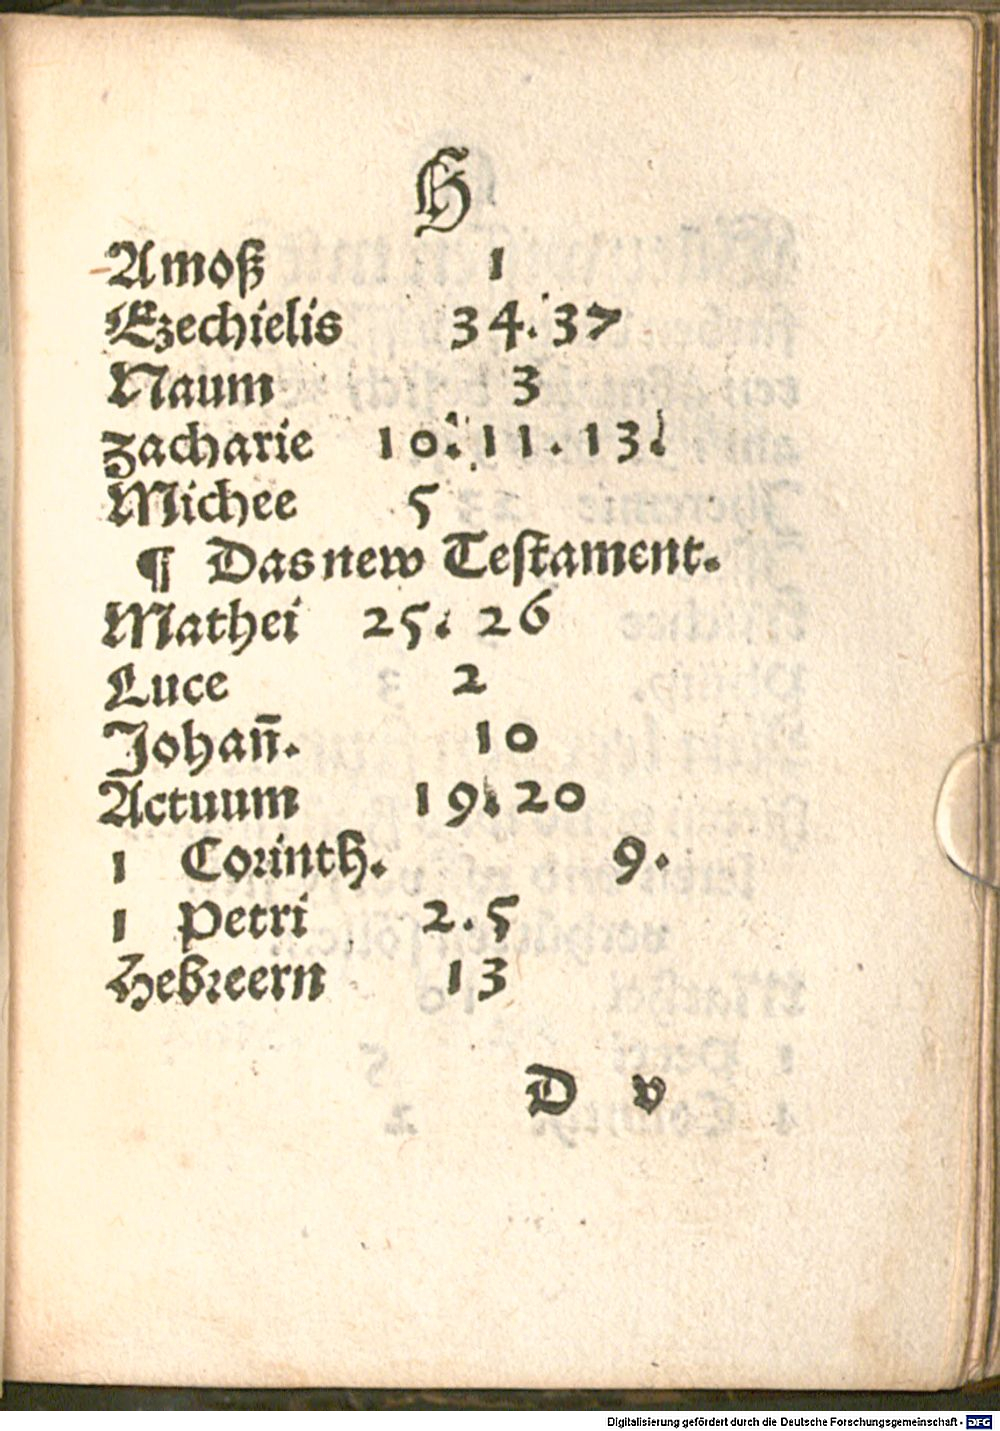 H
Amoß 1
Ezechielis 34. 37
Naum 3
Zacharie 10. 11. 13.
Michee 5
¶ Das new Testament.
Mathei 25. 26
Luce 2
Johan̄. 10
Actuum 19. 20
1 Corinth. 9.
1 Petri 2. 5
Hebreern 13
D v
Digitalisierung gefördert durch die Deutsche Forschungsgemeinschaft - DFG